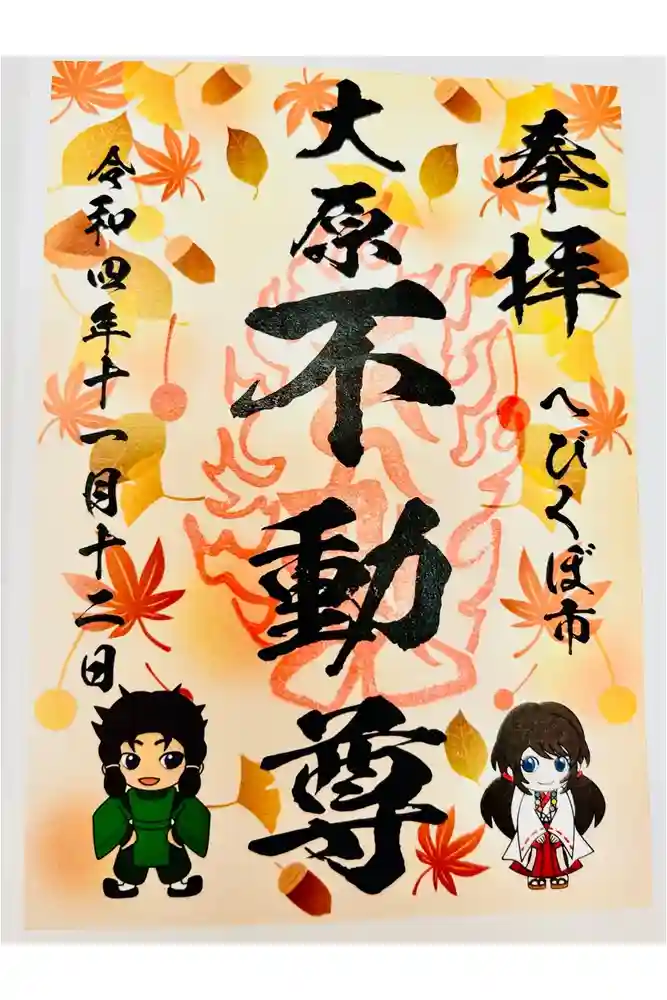 奉拝
へびくぼ市
大原不動尊
令和四年十一月十二日